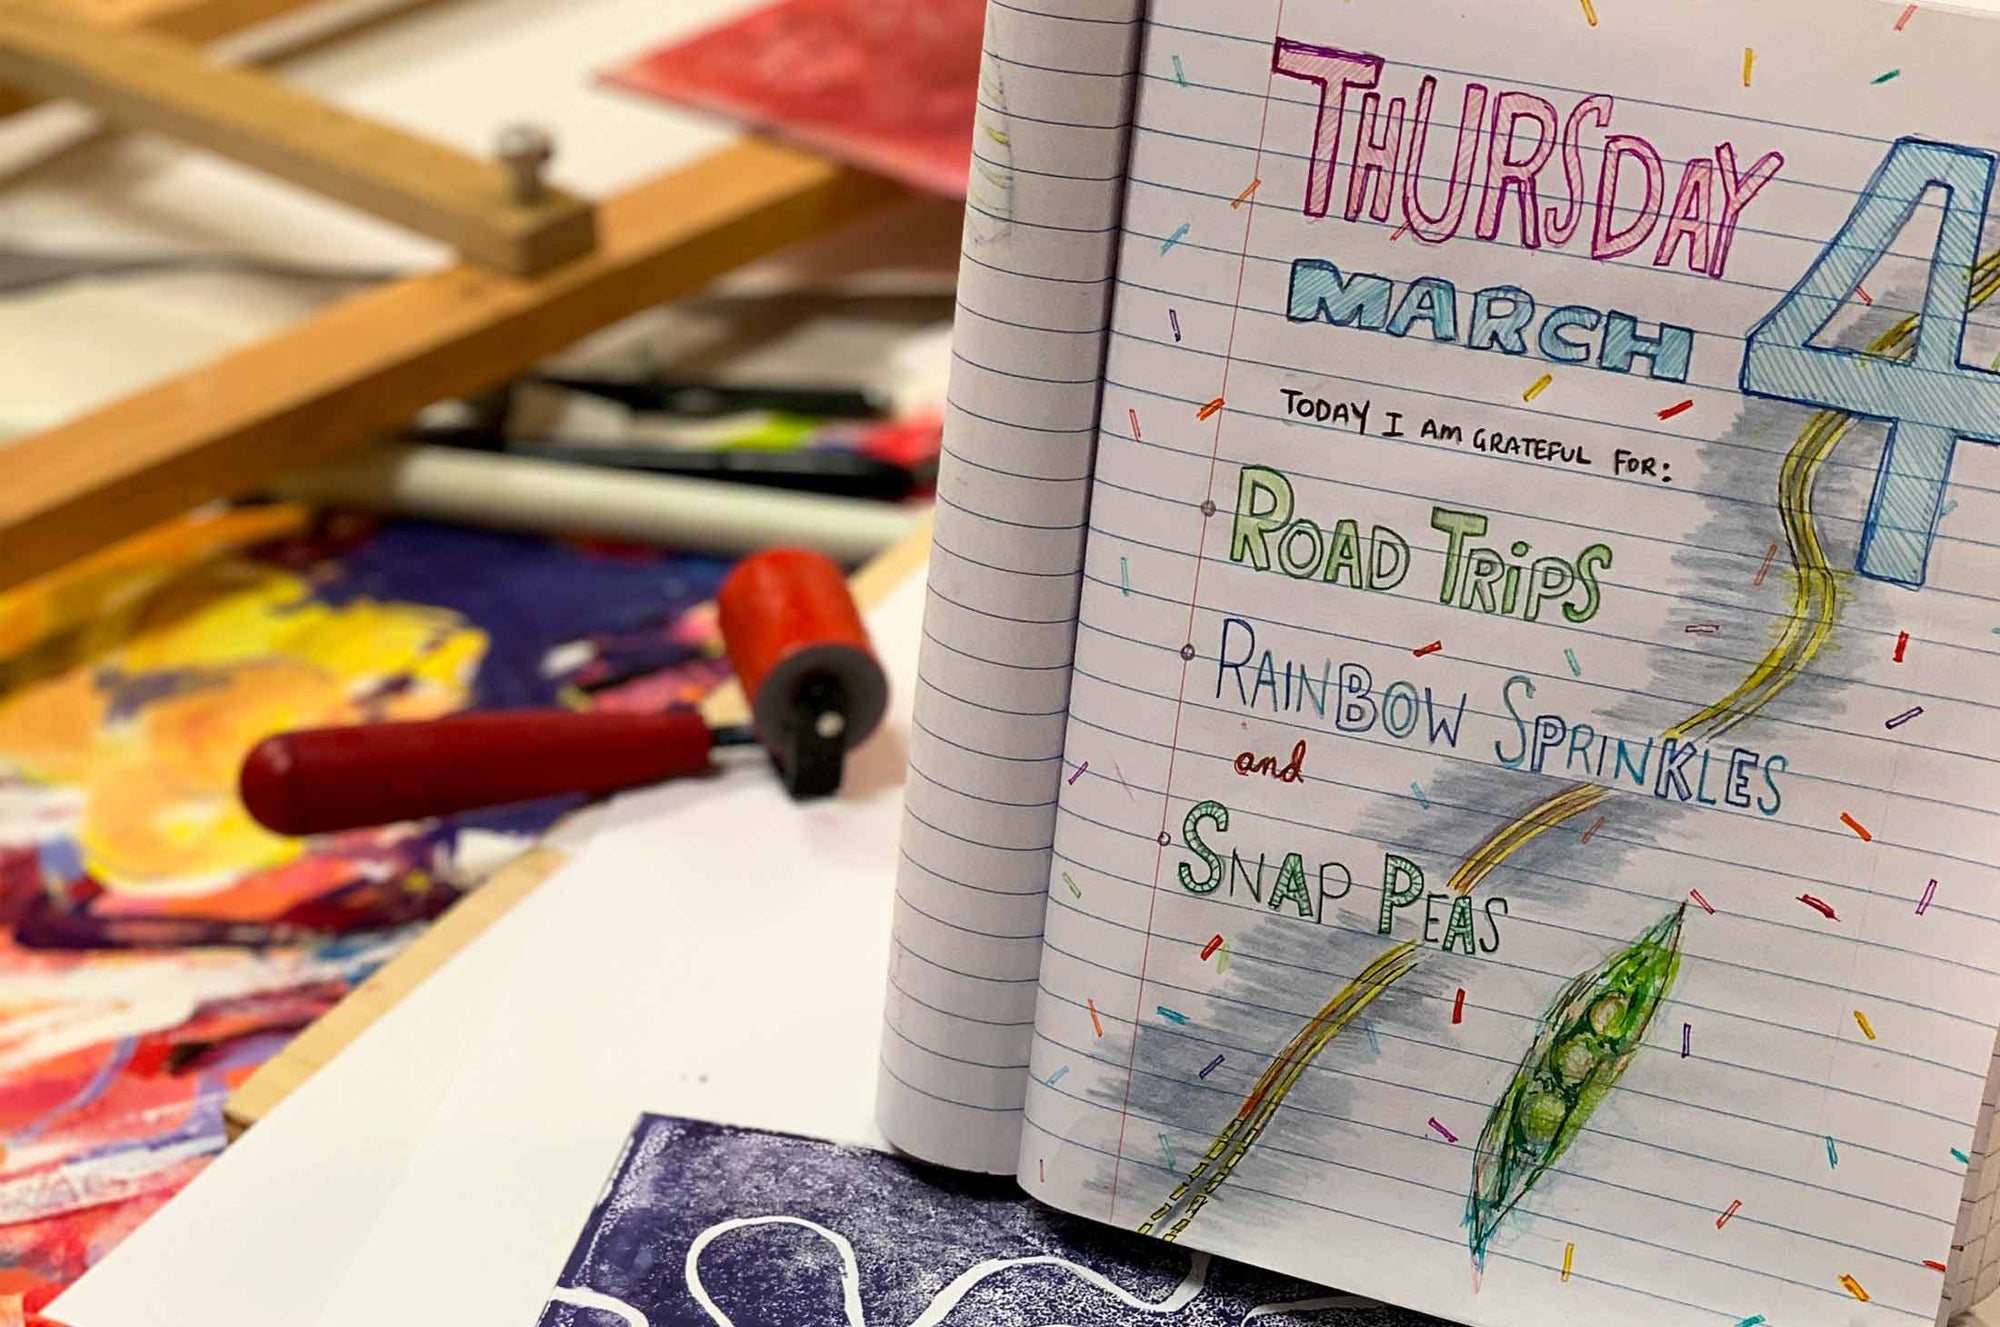 THURSDAY
MARCH 4
TODAY I AM GRATEFUL FOR:
ROAD TRIPS
RAINBOW SPRINKLES
and
SNAP PEAS